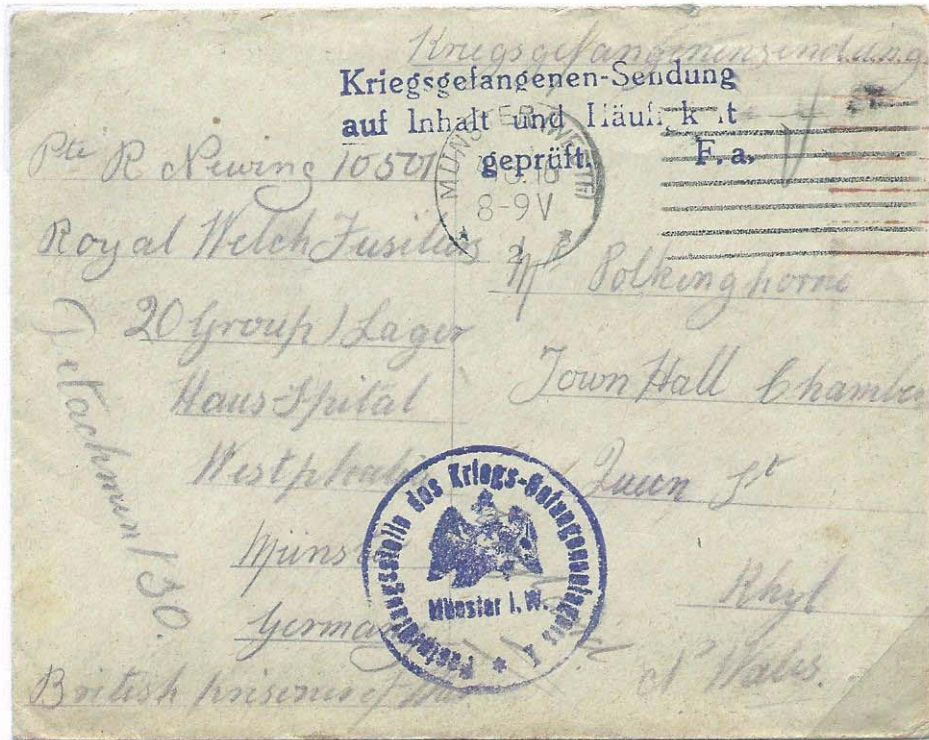 Kriegsgefangenensendung
Kriegsgefangenen-Sendung
auf Inhalt und Häufigkeit
geprüft. F. a.
MÜNSTER (WESTF)
8-9 V
Pte R Newing 10501
Royal Welch Fusiliers
20 Group / Lager
Haus Spital
Westphalia
Münster
Germany
British Prisoner of War
Detachmunt 30.
Mr Polkinghorne
Town Hall Chamber
Queen St
Rhyl
N Wales.
Postprüfungsstelle des Kriegs-Gefangenenlagers
Münster i. W.